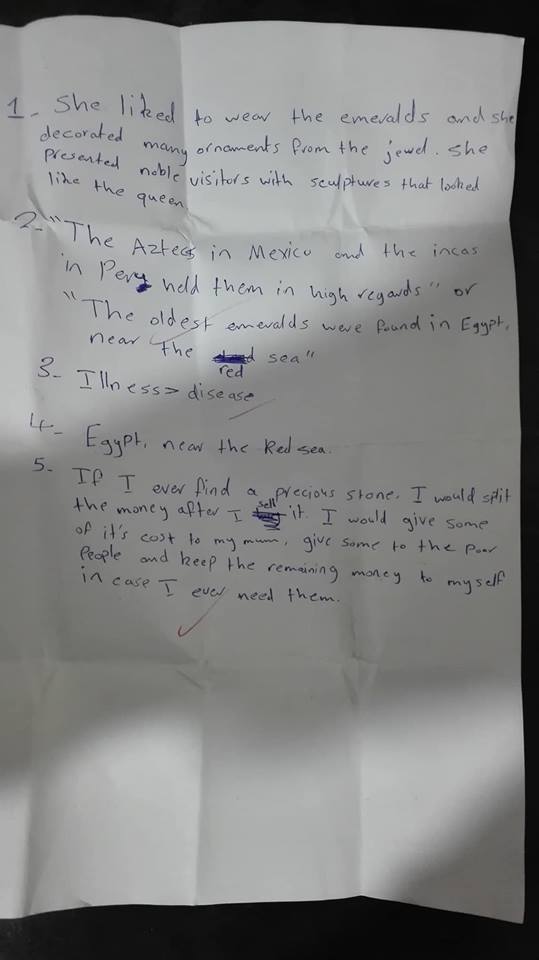 1- She liked to wear the emeralds and she
decorated many ornaments from the jewel. She
presented noble visitors with sculptures that looked
like the queen
2- "The Aztecs in Mexico and the incas
in Peru held them in high regards" or
"The oldest emeralds were found in Egypt,
near the red sea"
3- Illness => disease
4- Egypt, near the Red sea.
5- If I ever find a precious stone, I would split
the money after I sell it. I would give some
of it's cost to my mum, give some to the poor
People and keep the remaining money to myself
in case I ever need them.